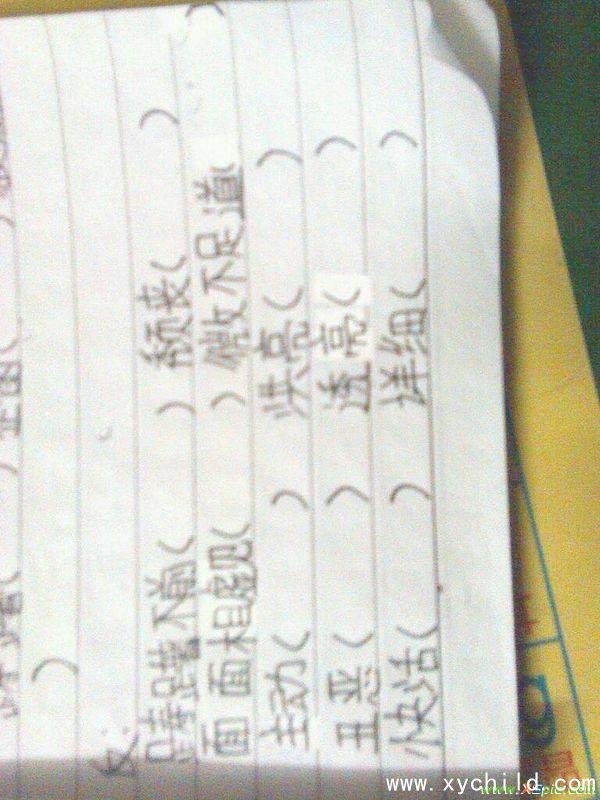 ) 企图( )
)
反:
踌躇不前( ) 颓丧( )
面面相觑( ) 微不足道( )
主动( ) 洪亮( )
丑恶( ) 透亮( )
快活( ) 详细( )
www.xychild.com